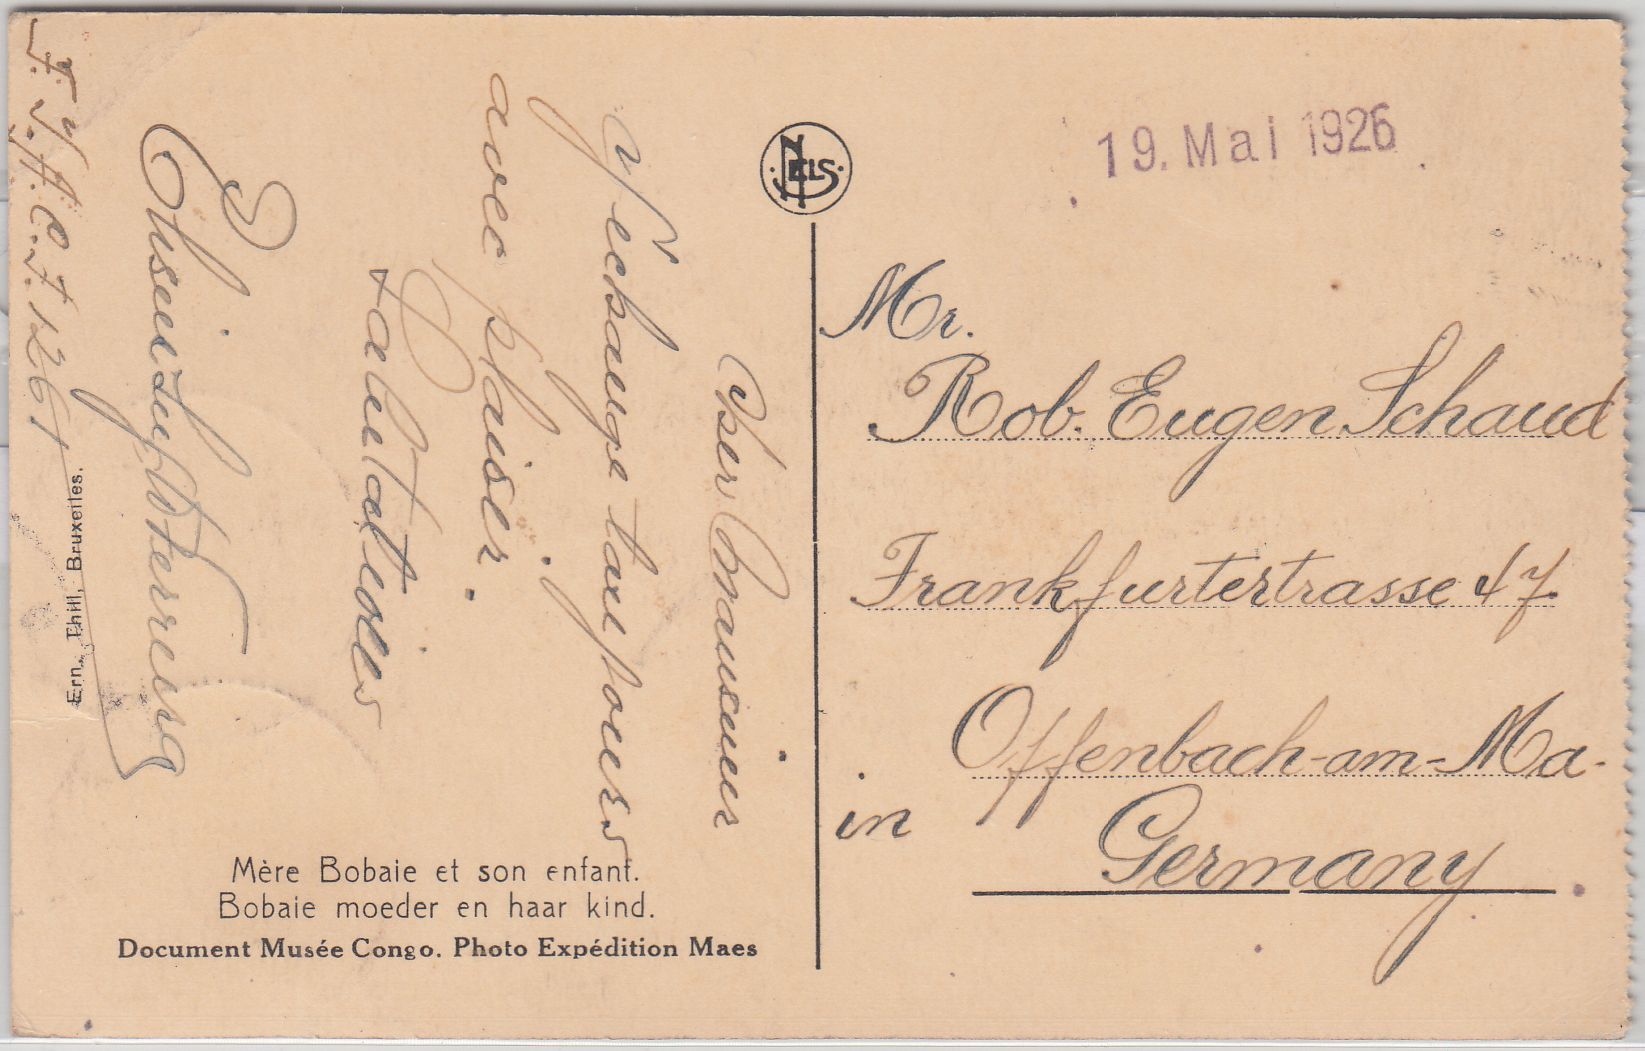 19. Mai 1926
NELS
Mr.
Rob. Eugen Schaud
Frankfurtertrasse 47.
Offenbach-am-Ma-
in
Germany
Cher Monsieur
J'échange toujours
avec plaisir.
Salutations
I.J.A.C.I. 1261
Ern. Thill, Bruxelles.
Mère Bobaie et son enfant.
Bobaie moeder en haar kind.
Document Musée Congo. Photo Expédition Maes